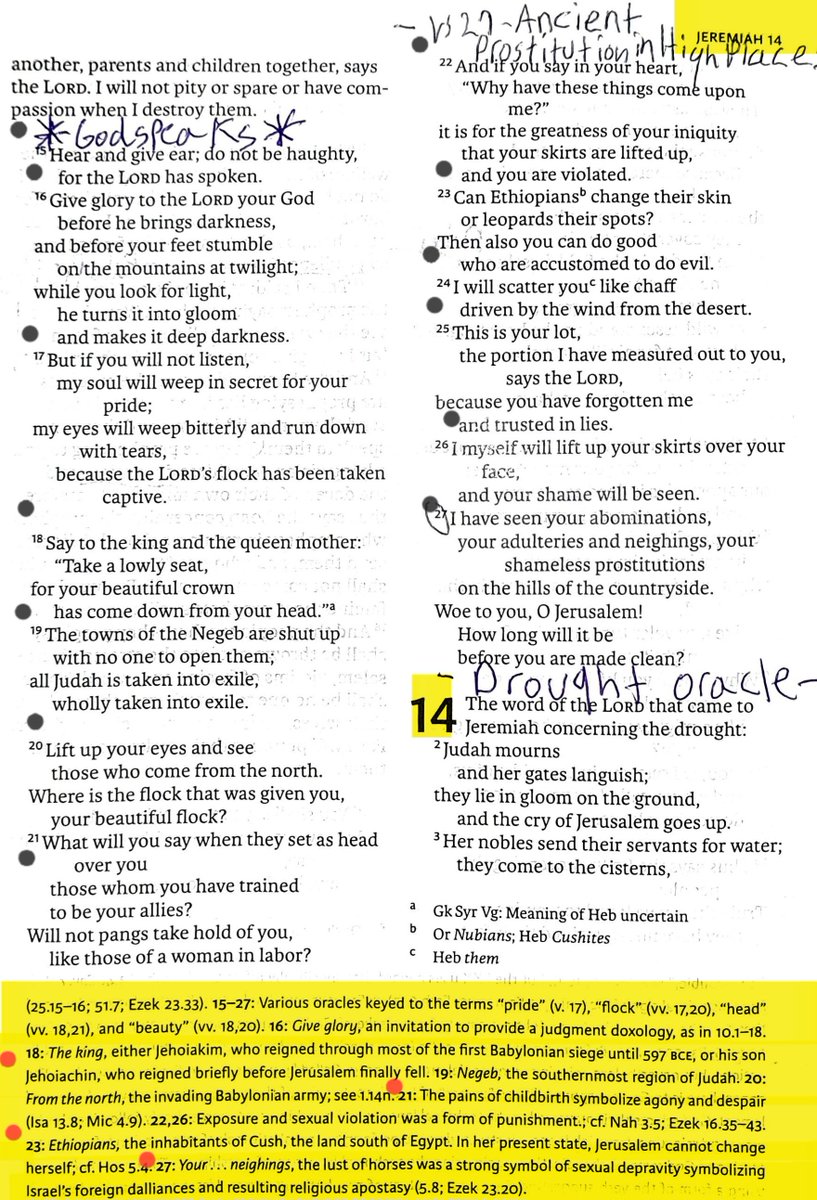 JEREMIAH 14
- Vs 27 - Ancient
Prostitution in High Places
another, parents and children together, says
the LORD. I will not pity or spare or have com-
passion when I destroy them.
* God speaks *
15 Hear and give ear; do not be haughty,
for the LORD has spoken.
16 Give glory to the LORD your God
before he brings darkness,
and before your feet stumble
on the mountains at twilight;
while you look for light,
he turns it into gloom
and makes it deep darkness.
17 But if you will not listen,
my soul will weep in secret for your
pride;
my eyes will weep bitterly and run down
with tears,
because the LORD's flock has been taken
captive.
18 Say to the king and the queen mother:
"Take a lowly seat,
for your beautiful crown
has come down from your head."a
19 The towns of the Negeb are shut up
with no one to open them;
all Judah is taken into exile,
wholly taken into exile.
20 Lift up your eyes and see
those who come from the north.
Where is the flock that was given you,
your beautiful flock?
21 What will you say when they set as head
over you
those whom you have trained
to be your allies?
Will not pangs take hold of you,
like those of a woman in labor?
22 And if you say in your heart,
"Why have these things come upon
me?"
it is for the greatness of your iniquity
that your skirts are lifted up,
and you are violated.
23 Can Ethiopiansb change their skin
or leopards their spots?
Then also you can do good
who are accustomed to do evil.
24 I will scatter youc like chaff
driven by the wind from the desert.
25 This is your lot,
the portion I have measured out to you,
says the LORD,
because you have forgotten me
and trusted in lies.
26 I myself will lift up your skirts over your
face,
and your shame will be seen.
27 I have seen your abominations,
your adulteries and neighings, your
shameless prostitutions
on the hills of the countryside.
Woe to you, O Jerusalem!
How long will it be
before you are made clean?
- Drought oracle -
14 The word of the LORD that came to
Jeremiah concerning the drought:
2 Judah mourns
and her gates languish;
they lie in gloom on the ground,
and the cry of Jerusalem goes up.
3 Her nobles send their servants for water;
they come to the cisterns,
a Gk Syr Vg: Meaning of Heb uncertain
b Or Nubians; Heb Cushites
c Heb them
(25.15–16; 51.7; Ezek 23.33). 15–27: Various oracles keyed to the terms "pride" (v. 17), "flock" (vv. 17,20), "head"
(vv. 18,21), and "beauty" (vv. 18,20). 16: Give glory, an invitation to provide a judgment doxology, as in 10.1–18.
18: The king, either Jehoiakim, who reigned through most of the first Babylonian siege until 597 BCE, or his son
Jehoiachin, who reigned briefly before Jerusalem finally fell. 19: Negeb, the southernmost region of Judah. 20:
From the north, the invading Babylonian army; see 1.14n. 21: The pains of childbirth symbolize agony and despair
(Isa 13.8; Mic 4.9). 22,26: Exposure and sexual violation was a form of punishment.; cf. Nah 3.5; Ezek 16.35–43.
23: Ethiopians, the inhabitants of Cush, the land south of Egypt. In her present state, Jerusalem cannot change
herself; cf. Hos 5.4. 27: Your . . . neighings, the lust of horses was a strong symbol of sexual depravity symbolizing
Israel's foreign dalliances and resulting religious apostasy (5.8; Ezek 23.20).